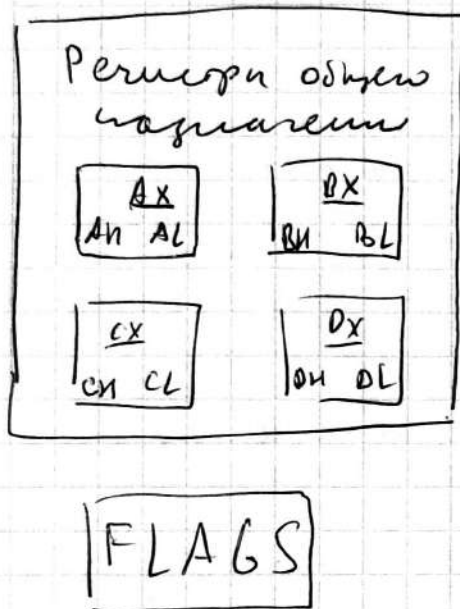 Регистры общего
назначения
AX BX
AH AL BH BL
CX DX
CH CL DH DL
FLAGS